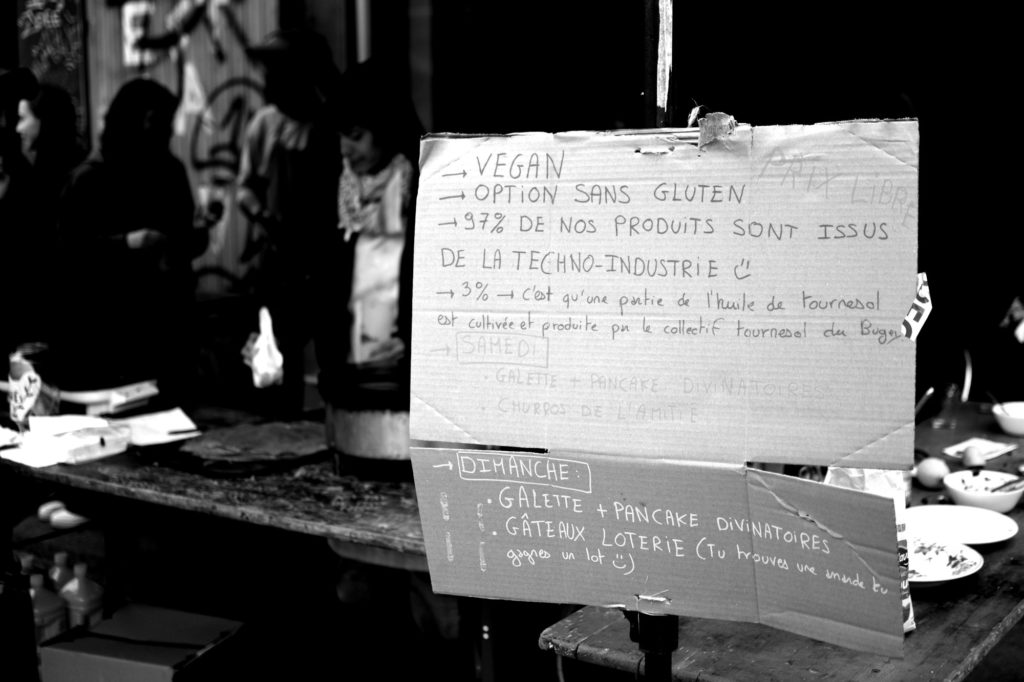 → VEGAN
PRIX LIBRE
→ OPTION SANS GLUTEN
→ 97% DE NOS PRODUITS SONT ISSUS
DE LA TECHNO-INDUSTRIE
→ 3% → C'est qu'une partie de l'huile de tournesol
est cultivée et produite par le collectif tournesol du Bugey
→ SAMEDI
• GALETTE + PANCAKE DIVINATOIRES
• CHURROS DE L'AMITIÉ
→ DIMANCHE :
• GALETTE + PANCAKE DIVINATOIRES
• GÂTEAUX LOTERIE (Tu trouves une amande tu
gagnes un lot :))